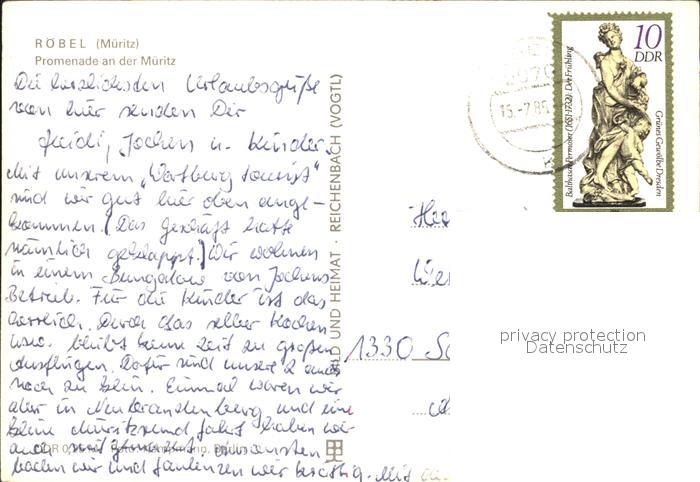 RÖBEL (Müritz)
Promenade an der Müritz
Die herzlichsten Urlaubsgrüße
von hier senden Dir
Heidi, Jochen u. Kinder.
Mit unserem "Wartburg Tourist"
sind wir gut hier oben ange-
kommen. (Das Geschäft hatte
nämlich geklappt.) Wir wohnen
in einem Bungalow von Jochens
Betrieb. Für die Kinder ist das
herrlich. Durch das selber Kochen
usw. bleibt keine Zeit zu großen
Ausflügen. Dafür sind unsere 2 auch
noch zu klein. Einmal waren wir
aber in Neubrandenburg und eine
kleine Müritzrundfahrt haben wir
auch mitgemacht. Ansonsten
baden wir und faulenzen wir kräftig. Mit
BILD UND HEIMAT · REICHENBACH (VOGTL)
15.-7.85
10
DDR
Balthasar Permoser (1651-1732): Der Frühling
Grünes Gewölbe Dresden
1330
privacy protection
Datenschutz